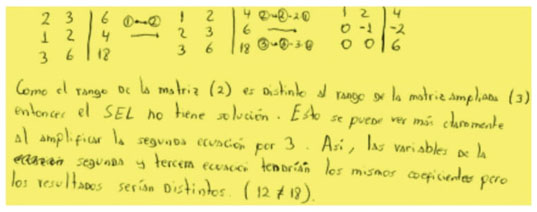 2 3 | 6 ①↔② 1 2 | 4 ②→②-2① 1 2 | 4
1 2 | 4 → 2 3 | 6 → 0 -1 | -2
3 6 | 18 3 6 | 18 ③→③-3① 0 0 | 6
Como el rango de la matriz (2) es distinto al rango de la matriz ampliada (3)
entonces el SEL no tiene solución. Esto se puede ver más claramente
al amplificar la segunda ecuación por 3. Así, las variables de la
segunda y tercera ecuación tendrían los mismos coeficientes pero
los resultados serían distintos. (12 ≠ 18).